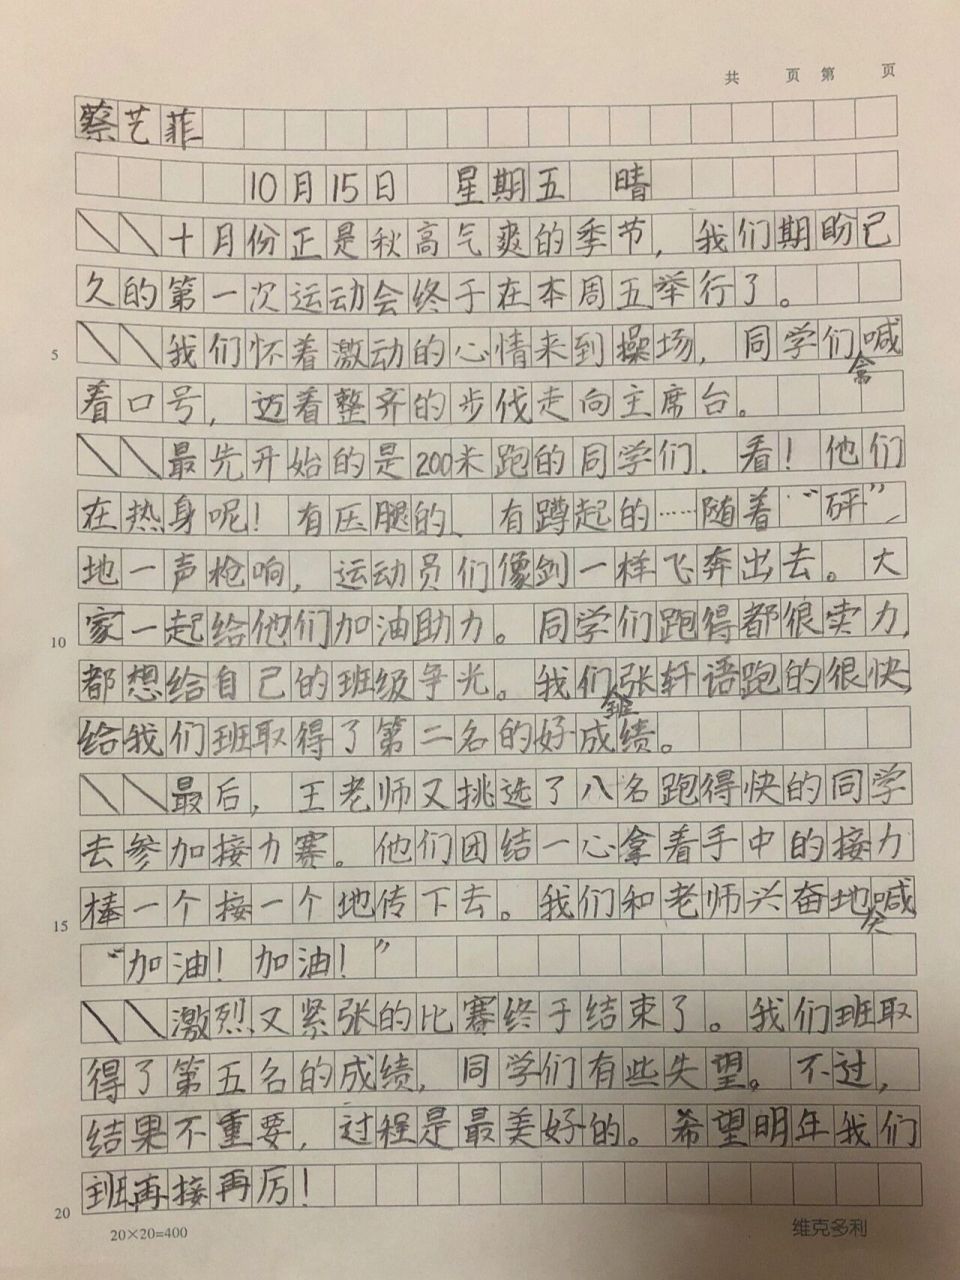 共 页 第 页
蔡艺菲
10月15日 星期五 晴
十月份正是秋高气爽的季节,我们期盼已
久的第一次运动会终于在本周五举行了。
5 我们怀着激动的心情来到操场,同学们喊
着口号,迈着整齐的步伐走向主席台。
最先开始的是200米跑的同学们.看!他们
在热身呢!有压腿的、有蹲起的……随着“砰”
地一声枪响,运动员们像剑一样飞奔出去。大
10 家一起给他们加油助力。同学们跑得都很卖力,
都想给自己的班级争光。我们张轩语跑的很快,
班
给我们班取得了第二名的好成绩。
最后,王老师又挑选了八名跑得快的同学
去参加接力赛。他们团结一心拿着手中的接力
15 棒一个接一个地传下去。我们和老师兴奋地喊
“加油!加油!”
激烈又紧张的比赛终于结束了。我们班取
得了第五名的成绩,同学们有些失望。不过,
结果不重要,过程是最美好的。希望明年我们
20 班再接再厉!
20×20=400 维克多利